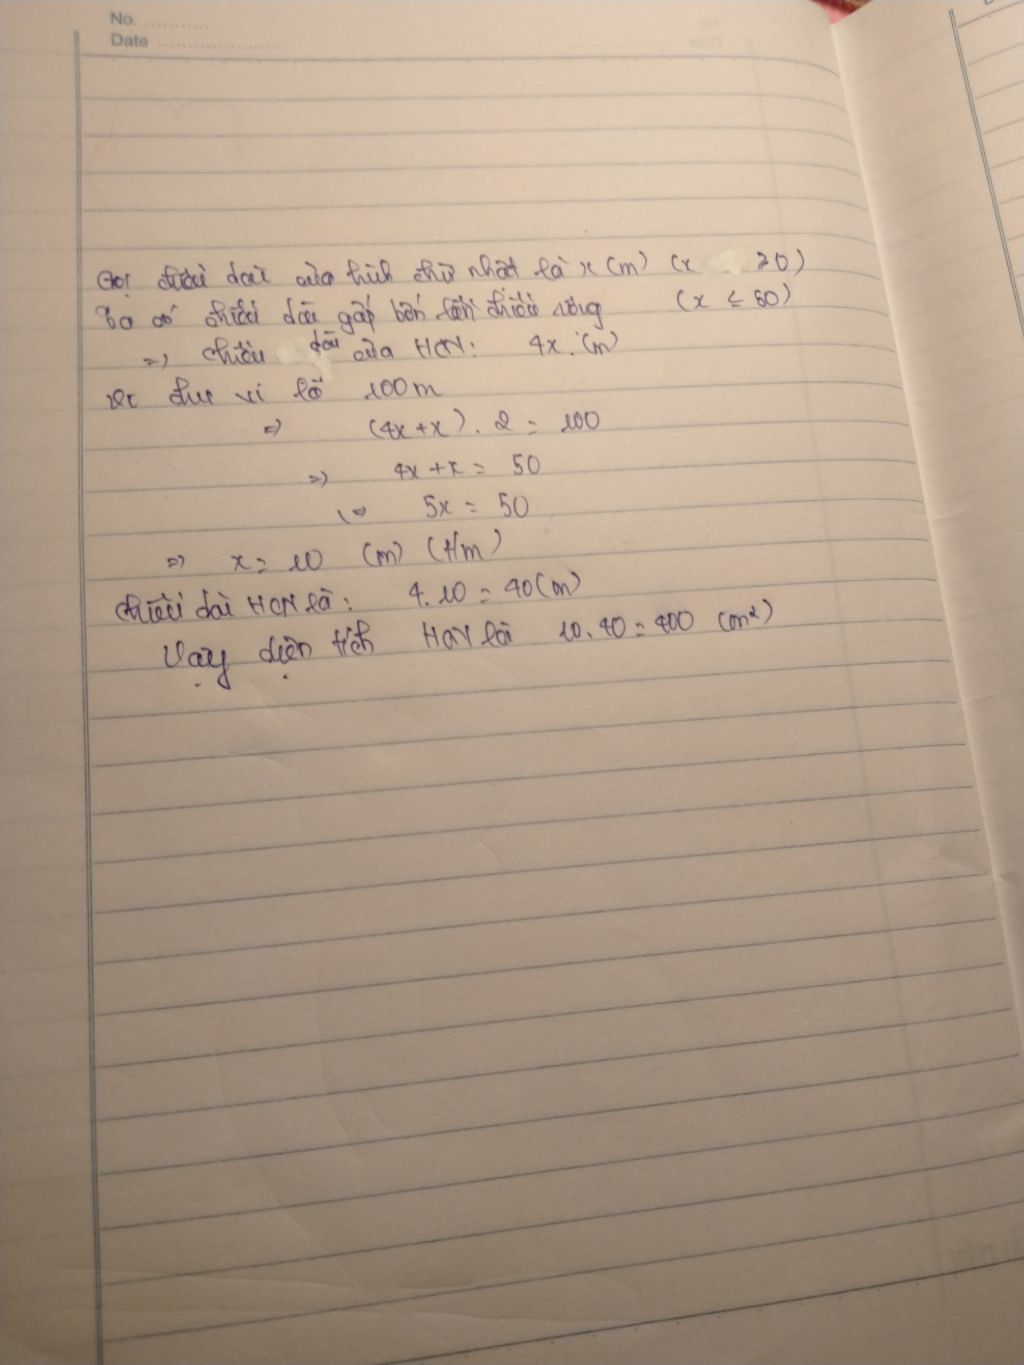 No. ............
Date .....................
Gọi chiều dài của hình chữ nhật là x (m) (x >0)
Ta có chiều dài gấp bốn lần chiều rộng (x ≤ 50)
=) chiều dài của HCN: 4x (m)
chu vi là 100m
=) (4x+x). 2 = 100
=) 4x +x = 50
(=) 5x = 50
=) x = 10 (m) (t/m)
chiều dài HCN là: 4. 10 = 40 (m)
Vậy diện tích HCN là 10. 40 = 400 (m²)